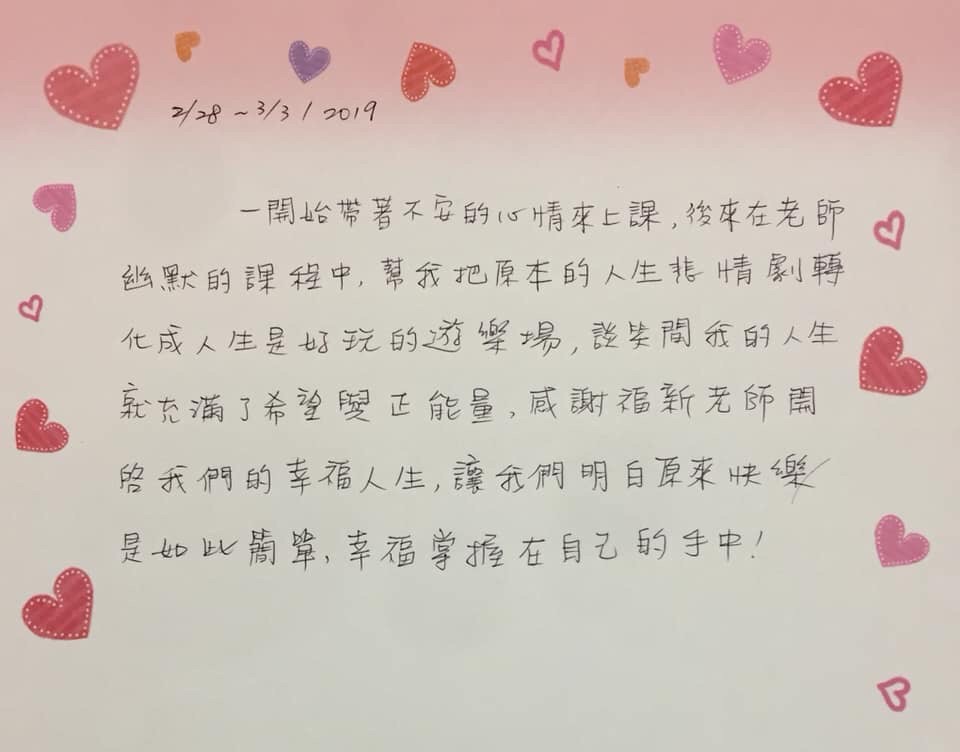 2/28 ~ 3/3 / 2019
一開始帶著不安的心情來上課,後來在老師
幽默的課程中,幫我把原本的人生悲情劇轉
化成人生是好玩的遊樂場,談笑間我的人生
就充滿了希望與正能量,感謝福新老師開
啓我們的幸福人生,讓我們明白原來快樂
是如此簡單,幸福掌握在自己的手中!